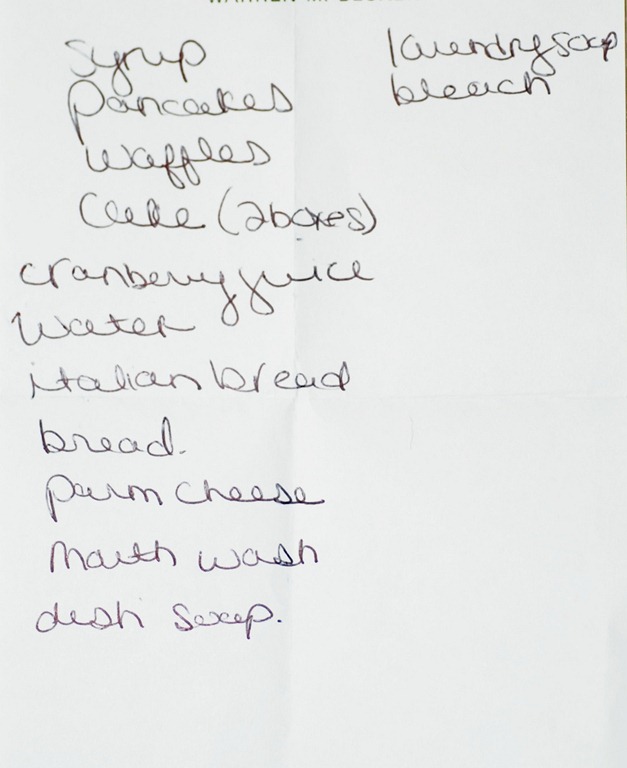 syrup
pancakes
waffles
Cake (2boxes)
cranberry juice
Water
italian bread
bread.
parm cheese
Mouth wash
dish soap.
laundry soap
bleach